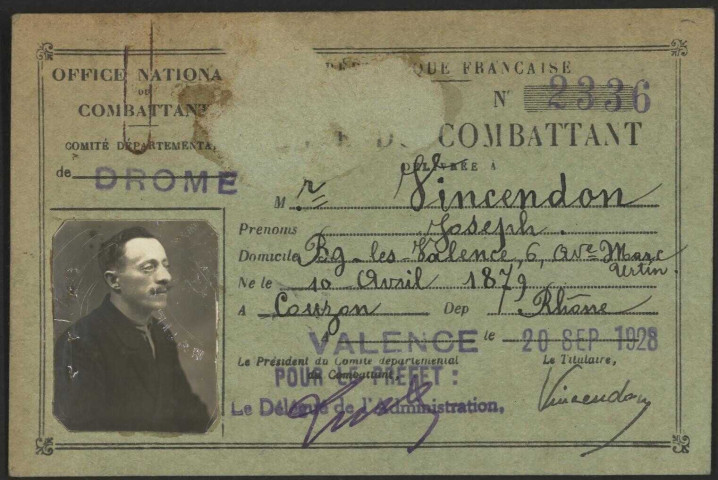 OFFICE NATIONA
DU
COMBATTANT
COMITÉ DÉPARTEMENTAL
de DROME
RÉPUBLIQUE FRANÇAISE
N° 2336
E DU COMBATTANT
DÉLIVRÉE A
M r Vincendon
Prenoms Joseph.
Domicile Bg-les-Valence, 6, Ave Marc Urtin.
Ne le 10 Avril 1879
A Couzon Dep Rhône
VALENCE le 20 SEP 1928
Le Président du Comite départemental
du Combattant,
Le Titulaire,
POUR LE PREFET :
Le Délégué de l'Administration,
Vincendon